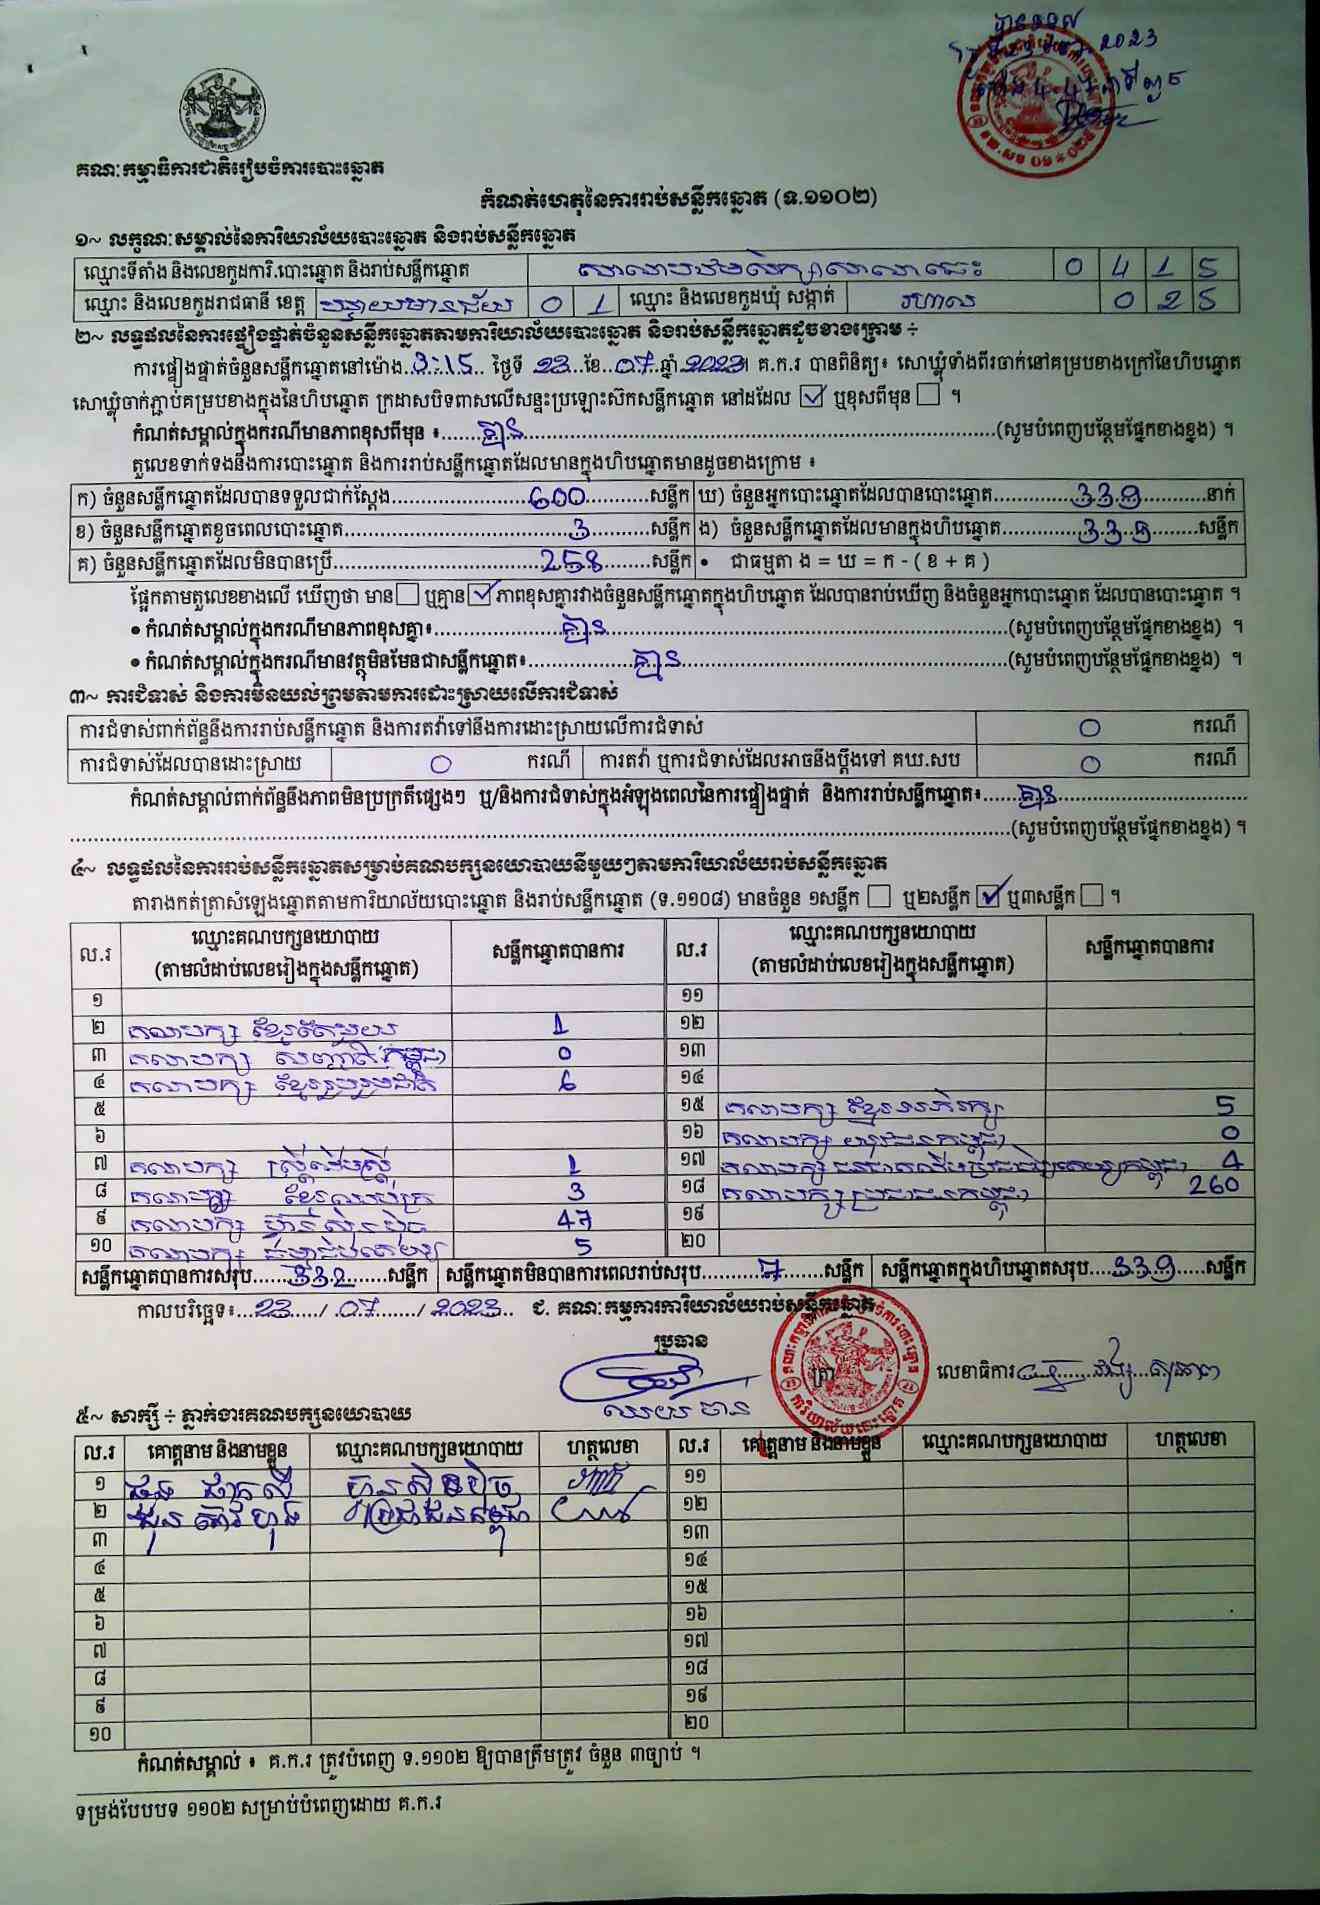 គណៈកម្មាធិការជាតិរៀបចំការបោះឆ្នោត
2023
កំណត់ហេតុនៃការរាប់សន្លឹកឆ្នោត (ទ.១១០២)
១~ លក្ខណៈសម្គាល់នៃការិយាល័យបោះឆ្នោត និងរាប់សន្លឹកឆ្នោត
ឈ្មោះទីតាំង និងលេខកូដការិ.បោះឆ្នោត និងរាប់សន្លឹកឆ្នោត 0 4 1 5
ឈ្មោះ និងលេខកូដរាជធានី ខេត្ត បន្ទាយមានជ័យ 0 1 ឈ្មោះ និងលេខកូដឃុំ សង្កាត់ 0 2 5
២~ លទ្ធផលនៃការផ្ទៀងផ្ទាត់ចំនួនសន្លឹកឆ្នោតតាមការិយាល័យបោះឆ្នោត និងរាប់សន្លឹកឆ្នោតដូចខាងក្រោម ÷
ការផ្ទៀងផ្ទាត់ចំនួនសន្លឹកឆ្នោតនៅម៉ោង..3:15.. ថ្ងៃទី 23 ខែ..07..ឆ្នាំ 2023។ គ.ក.រ បានពិនិត្យ៖ សោឃ្លុំទាំងពីរចាក់នៅគម្របខាងក្រៅនៃហិបឆ្នោត
សោឃ្លុំចាក់ភ្ជាប់គម្របខាងក្នុងនៃហិបឆ្នោត ក្រដាសបិទពាសលើសន្ទះប្រឡោះស៊កសន្លឹកឆ្នោត នៅដដែល ☑ ឬខុសពីមុន ☐ ។
កំណត់សម្គាល់ក្នុងករណីមានភាពខុសពីមុន ៖.......គ្មាន.......(សូមបំពេញបន្ថែមផ្នែកខាងខ្នង) ។
តួលេខទាក់ទងនឹងការបោះឆ្នោត និងការរាប់សន្លឹកឆ្នោតដែលមានក្នុងហិបឆ្នោតមានដូចខាងក្រោម ៖
ក) ចំនួនសន្លឹកឆ្នោតដែលបានទទួលជាក់ស្តែង.......600.......សន្លឹក ឃ) ចំនួនអ្នកបោះឆ្នោតដែលបានបោះឆ្នោត.......339.......នាក់
ខ) ចំនួនសន្លឹកឆ្នោតខូចពេលបោះឆ្នោត.......3.......សន្លឹក ង) ចំនួនសន្លឹកឆ្នោតដែលមានក្នុងហិបឆ្នោត.......339.......សន្លឹក
គ) ចំនួនសន្លឹកឆ្នោតដែលមិនបានប្រើ.......258.......សន្លឹក • ជាធម្មតា ង = ឃ = ក - ( ខ + គ )
ផ្អែកតាមតួលេខខាងលើ ឃើញថា មាន ☐ ឬគ្មាន ☑ ភាពខុសគ្នារវាងចំនួនសន្លឹកឆ្នោតក្នុងហិបឆ្នោត ដែលបានរាប់ឃើញ និងចំនួនអ្នកបោះឆ្នោត ដែលបានបោះឆ្នោត ។
• កំណត់សម្គាល់ក្នុងករណីមានភាពខុសគ្នា៖.......គ្មាន.......(សូមបំពេញបន្ថែមផ្នែកខាងខ្នង) ។
• កំណត់សម្គាល់ក្នុងករណីមានវត្ថុមិនមែនជាសន្លឹកឆ្នោត៖.......គ្មាន.......(សូមបំពេញបន្ថែមផ្នែកខាងខ្នង) ។
៣~ ការជំទាស់ និងការមិនយល់ព្រមតាមការដោះស្រាយលើការជំទាស់
ការជំទាស់ពាក់ព័ន្ធនឹងការរាប់សន្លឹកឆ្នោត និងការតវ៉ាទៅនឹងការដោះស្រាយលើការជំទាស់ 0 ករណី
ការជំទាស់ដែលបានដោះស្រាយ 0 ករណី ការតវ៉ា ឬការជំទាស់ដែលអាចនឹងប្តឹងទៅ គឃ.សប 0 ករណី
កំណត់សម្គាល់ពាក់ព័ន្ធនឹងភាពមិនប្រក្រតីផ្សេងៗ ឬ/និងការជំទាស់ក្នុងអំឡុងពេលនៃការផ្ទៀងផ្ទាត់ និងការរាប់សន្លឹកឆ្នោត៖.......គ្មាន.......
.......(សូមបំពេញបន្ថែមផ្នែកខាងខ្នង) ។
៤~ លទ្ធផលនៃការរាប់សន្លឹកឆ្នោតសម្រាប់គណបក្សនយោបាយនីមួយៗតាមការិយាល័យរាប់សន្លឹកឆ្នោត
តារាងកត់ត្រាសំឡេងឆ្នោតតាមការិយាល័យបោះឆ្នោត និងរាប់សន្លឹកឆ្នោត (ទ.១១០៨) មានចំនួន ១សន្លឹក ☐ ឬ២សន្លឹក ☑ ឬ៣សន្លឹក ☐ ។
ល.រ ឈ្មោះគណបក្សនយោបាយ សន្លឹកឆ្នោតបានការ ល.រ ឈ្មោះគណបក្សនយោបាយ សន្លឹកឆ្នោតបានការ
(តាមលំដាប់លេខរៀងក្នុងសន្លឹកឆ្នោត) (តាមលំដាប់លេខរៀងក្នុងសន្លឹកឆ្នោត)
១ ១១
២ គណបក្ស ខ្មែរតែមួយ 1 ១២
៣ គណបក្ស សញ្ជាតិកម្ពុជា 0 ១៣
៤ គណបក្ស ខ្មែររួបរួមជាតិ 6 ១៤
៥ ១៥ គណបក្ស ខ្មែរអភិរក្ស 5
៦ ១៦ គណបក្ស យុវជនកម្ពុជា 0
៧ គណបក្ស ស្ត្រីដើម្បីស្ត្រី 1 ១៧ គណបក្ស 4
៨ គណបក្ស 3 ១៨ គណបក្សប្រជាជនកម្ពុជា 260
៩ គណបក្ស ហ៊្វុនស៊ិនប៉ិច 47 ១៩
១០ គណបក្ស ធម្មាធិបតេយ្យ 5 ២០
សន្លឹកឆ្នោតបានការសរុប.......332.......សន្លឹក សន្លឹកឆ្នោតមិនបានការពេលរាប់សរុប.......7.......សន្លឹក សន្លឹកឆ្នោតក្នុងហិបឆ្នោតសរុប.......339.......សន្លឹក
កាលបរិច្ឆេទ៖...23...../.07....../.2023.. ជ. គណៈកម្មការការិយាល័យរាប់សន្លឹកឆ្នោត
ប្រធាន
ត្រា លេខាធិការ
៥~ សាក្សី ÷ ភ្នាក់ងារគណបក្សនយោបាយ
ល.រ គោត្តនាម និងនាមខ្លួន ឈ្មោះគណបក្សនយោបាយ ហត្ថលេខា ល.រ គោត្តនាម និងនាមខ្លួន ឈ្មោះគណបក្សនយោបាយ ហត្ថលេខា
១ ហ៊្វុនស៊ិនប៉ិច ១១
២ ប្រជាជនកម្ពុជា ១២
៣ ១៣
៤ ១៤
៥ ១៥
៦ ១៦
៧ ១៧
៨ ១៨
៩ ១៩
១០ ២០
កំណត់សម្គាល់ ៖ គ.ក.រ ត្រូវបំពេញ ទ.១១០២ ឱ្យបានត្រឹមត្រូវ ចំនួន ៣ច្បាប់ ។
ទម្រង់បែបបទ ១១០២ សម្រាប់បំពេញដោយ គ.ក.រ